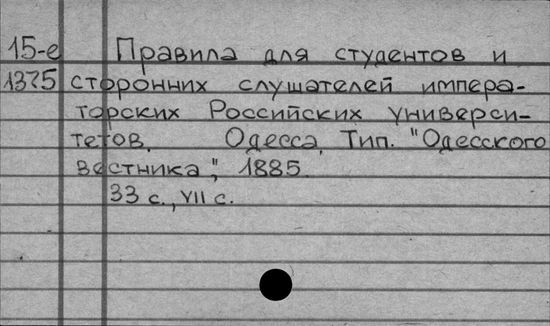 15-е Правила для студентов и
1375 сторонних слушателей импера-
торских Российских универси-
тетов. Одесса, Тип. "Одесского
вестника", 1885.
33 с., VII с.